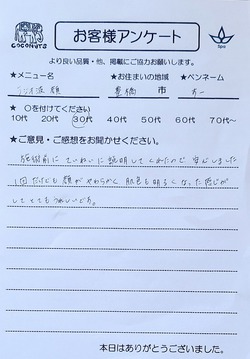 COCONUTS
お客様アンケート
Spa
より良い品質・他、掲載にご協力お願いします。
★メニュー名 ★お住まいの地域 ★ペンネーム
ラジオ波 顔 豊橋 市
★ 〇を付けてください
10代 20代 30代 40代 50代 60代 70代~
★ご意見・ご感想をお聞かせください。
施術前にていねいに説明してくれたので、安心しました
1回だけでも顔がやわらかく 肌色も明るくなった感じが
してとてもうれしいです。
本日はありがとうございました。